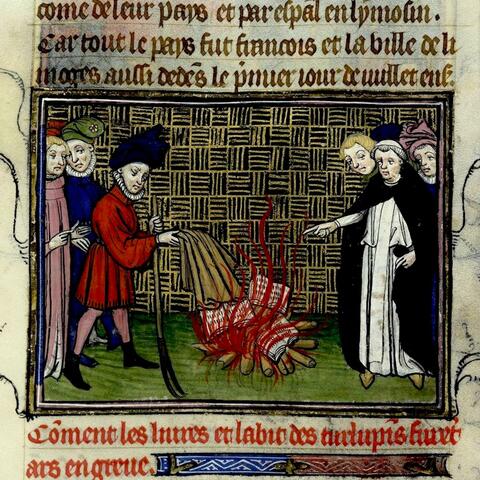 come de leur pays et par espal en lymosin.
Car tout le pays fut francois et la ville de li
moges aussi dedẽs le p̃mier iour de iuillet ens̃
Cõment les liures et labit des turlupĩs furẽt
ars en greue.